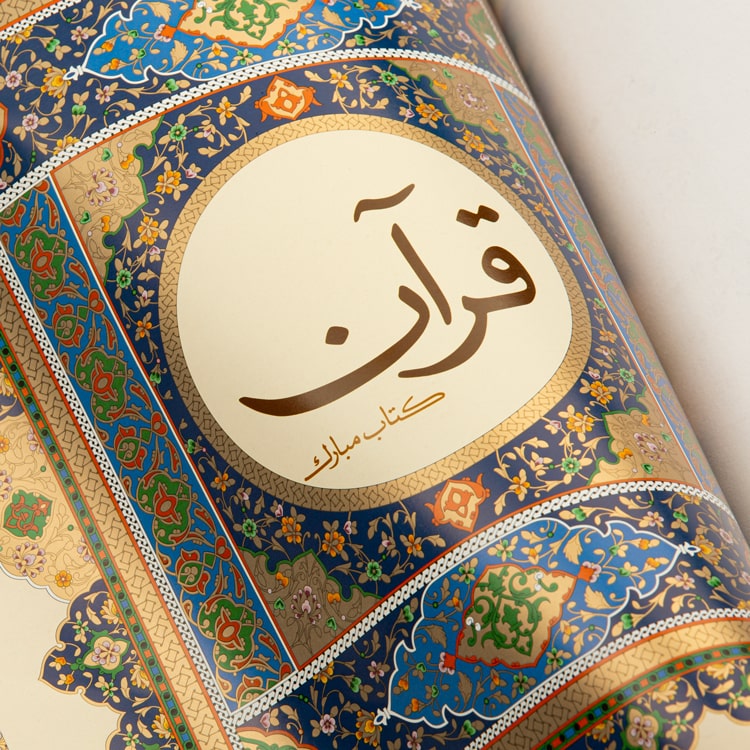 قرآن
کتاب مبارك